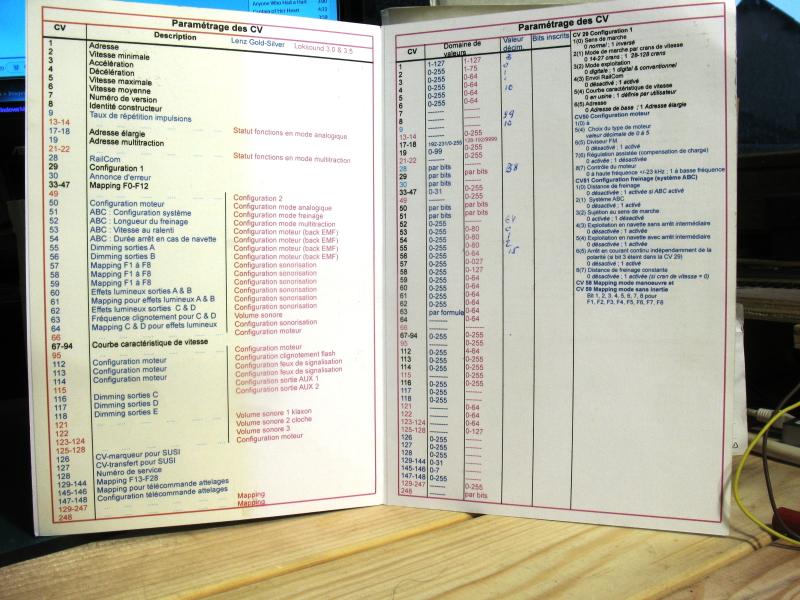 Anyone Who Had a Hart
Captain of Her Heart
Paramétrage des CV
CV Description Lenz Gold-Silver Loksound 3.0 & 3.5
1 Adresse
2 Vitesse minimale
3 Accélération
4 Décélération
5 Vitesse maximale
6 Vitesse moyenne
7 Numéro de version
8 Identité constructeur
9 Taux de répétition impulsions
13-14 Statut fonctions en mode analogique
17-18 Adresse élargie
19 Adresse multitraction
21-22 Statut fonctions en mode multitraction
28 RailCom
29 Configuration 1
30 Annonce d'erreur
33-47 Mapping F0-F12
49 Configuration 2
50 Configuration moteur Configuration mode analogique
51 ABC : Configuration système Configuration mode freinage
52 ABC : Longueur du freinage Configuration mode multitraction
53 ABC : Vitesse au ralenti Configuration moteur (back EMF)
54 ABC : Durée arrêt en cas de navette Configuration moteur (back EMF)
55 Dimming sorties A Configuration moteur (back EMF)
56 Dimming sorties B Configuration moteur (back EMF)
57 Mapping F1 à F8 Configuration sonorisation
58 Mapping F1 à F8 Configuration sonorisation
59 Mapping F1 à F8 Configuration sonorisation
60 Effets lumineux sorties A & B Configuration sonorisation
61 Mapping pour effets lumineux A & B Configuration sonorisation
62 Effets lumineux sorties C & D Configuration sonorisation
63 Fréquence clignotement pour C & D Volume sonore
64 Mapping C & D pour effets lumineux Configuration sonorisation
66 Configuration moteur
67-94 Courbe caractéristique de vitesse
95 Configuration moteur
112 Configuration moteur Configuration clignotement flash
113 Configuration moteur Configuration feux de signalisation
114 Configuration moteur Configuration feux de signalisation
115 Configuration sortie AUX 1
116 Dimming sorties C Configuration sortie AUX 2
117 Dimming sorties D
118 Dimming sorties E
121 Volume sonore 1 klaxon
122 Volume sonore 2 cloche
123-124 Volume sonore 3
125-128 Configuration moteur
126 CV-marqueur pour SUSI
127 CV-transfert pour SUSI
128 Numéro de service
129-144 Mapping F13-F28
145-146 Mapping pour télécommande attelages
147-148 Configuration télécommande attelages
129-247 Mapping
248 Mapping
Paramétrage des CV
CV Domaine de valeurs Valeur décim. Bits inscrits
1 1-127 1-127 3
2 0-255 1-75 0
3 0-255 0-64 1
4 0-255 0-64 1
5 0-255 0-64 10
6 0-255 0-64
7
8
9
13-14 0-255
17-18 192-231/0-255 128-192/9999
19 0-99 0-255
21-22
28 par bits 38
29 par bits par bits
30 par bits
33-47 0-31
49 par bits
50 par bits par bits
51 par bits
52 0-255
53 0-255 0-80
54 0-255 0-80
55 0-255 0-64
56 0-255 0-255 15
57 0-255
58 0-255
59 0-255
60 0-255
61 0-255
62 0-255
63 par formule 0-64
64
66
67-94 0-255 0-255
95
112 0-255 4-64
113 0-255
114 0-255
115
116 0-255
117 0-255
118 0-255
121
122 0-64
123-124 0-64
125-128 0-127
126 0-255
127 0-255
128 0-255
129-144 0-31
145-146 0-7
147-148 0-255
129-247 0-255
248 par bits
CV 29 Configuration 1
1(0) Sens de marche
0 normal ; 1 inversé
2(1) Mode de marche par crans de vitesse
0 14-27 crans ; 1 28-128 crans
3(2) Mode exploitation
0 digitale ; 1 digital & conventionnel
4(3) Envoi RailCom
0 désactivé ; 1 activé
5(4) Courbe caractéristique de vitesse
0 en usine ; 1 définie par utilisateur
6(5) Adresse
0 Adresse de base ; 1 Adresse élargie
CV50 Configuration moteur
1(0) à
5(4) Choix du type de moteur
valeur décimale de 0 à 5
6(5) Diviseur FM
0 désactivé ; 1 activé
7(6) Régulation assistée (compensation de charge)
0 activée ; 1 désactivée
8(7) Contrôle du moteur
0 à haute fréquence +/-23 kHz ; 1 à basse fréquence
CV51 Configuration freinage (système ABC)
1(0) Distance de freinage
0 désactivé ; 1 activée si ABC activé
2(1) Système ABC
0 désactivé ; 1 activé
3(2) Sujétion au sens de marche
0 activée ; 1 désactivée
4(3) Exploitation en navette sans arrêt intermédiaire
0 désactivé ; 1 activée
5(4) Exploitation en navette avec arrêt intermédiaire
0 désactivé ; 1 activée
6(5) Arrêt en courant continu indépendamment de la
polarité (si bit 3 éteint dans la CV 29)
0 désactivé ; 1 activé
8(7) Distance de freinage constante
0 désactivée ; 1 activée (si cran de vitesse = 0)
CV 58 Mapping mode manoeuvre et
CV 59 Mapping mode sans inertie
Bit 1, 2, 3, 4, 5, 6, 7, 8 pour
F1, F2, F3, F4, F5, F6, F7, F8